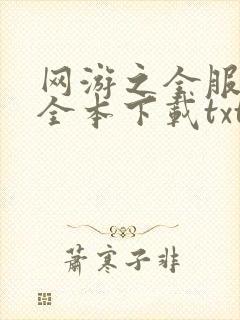 网游之全服
全本下载txt
萧寒子非